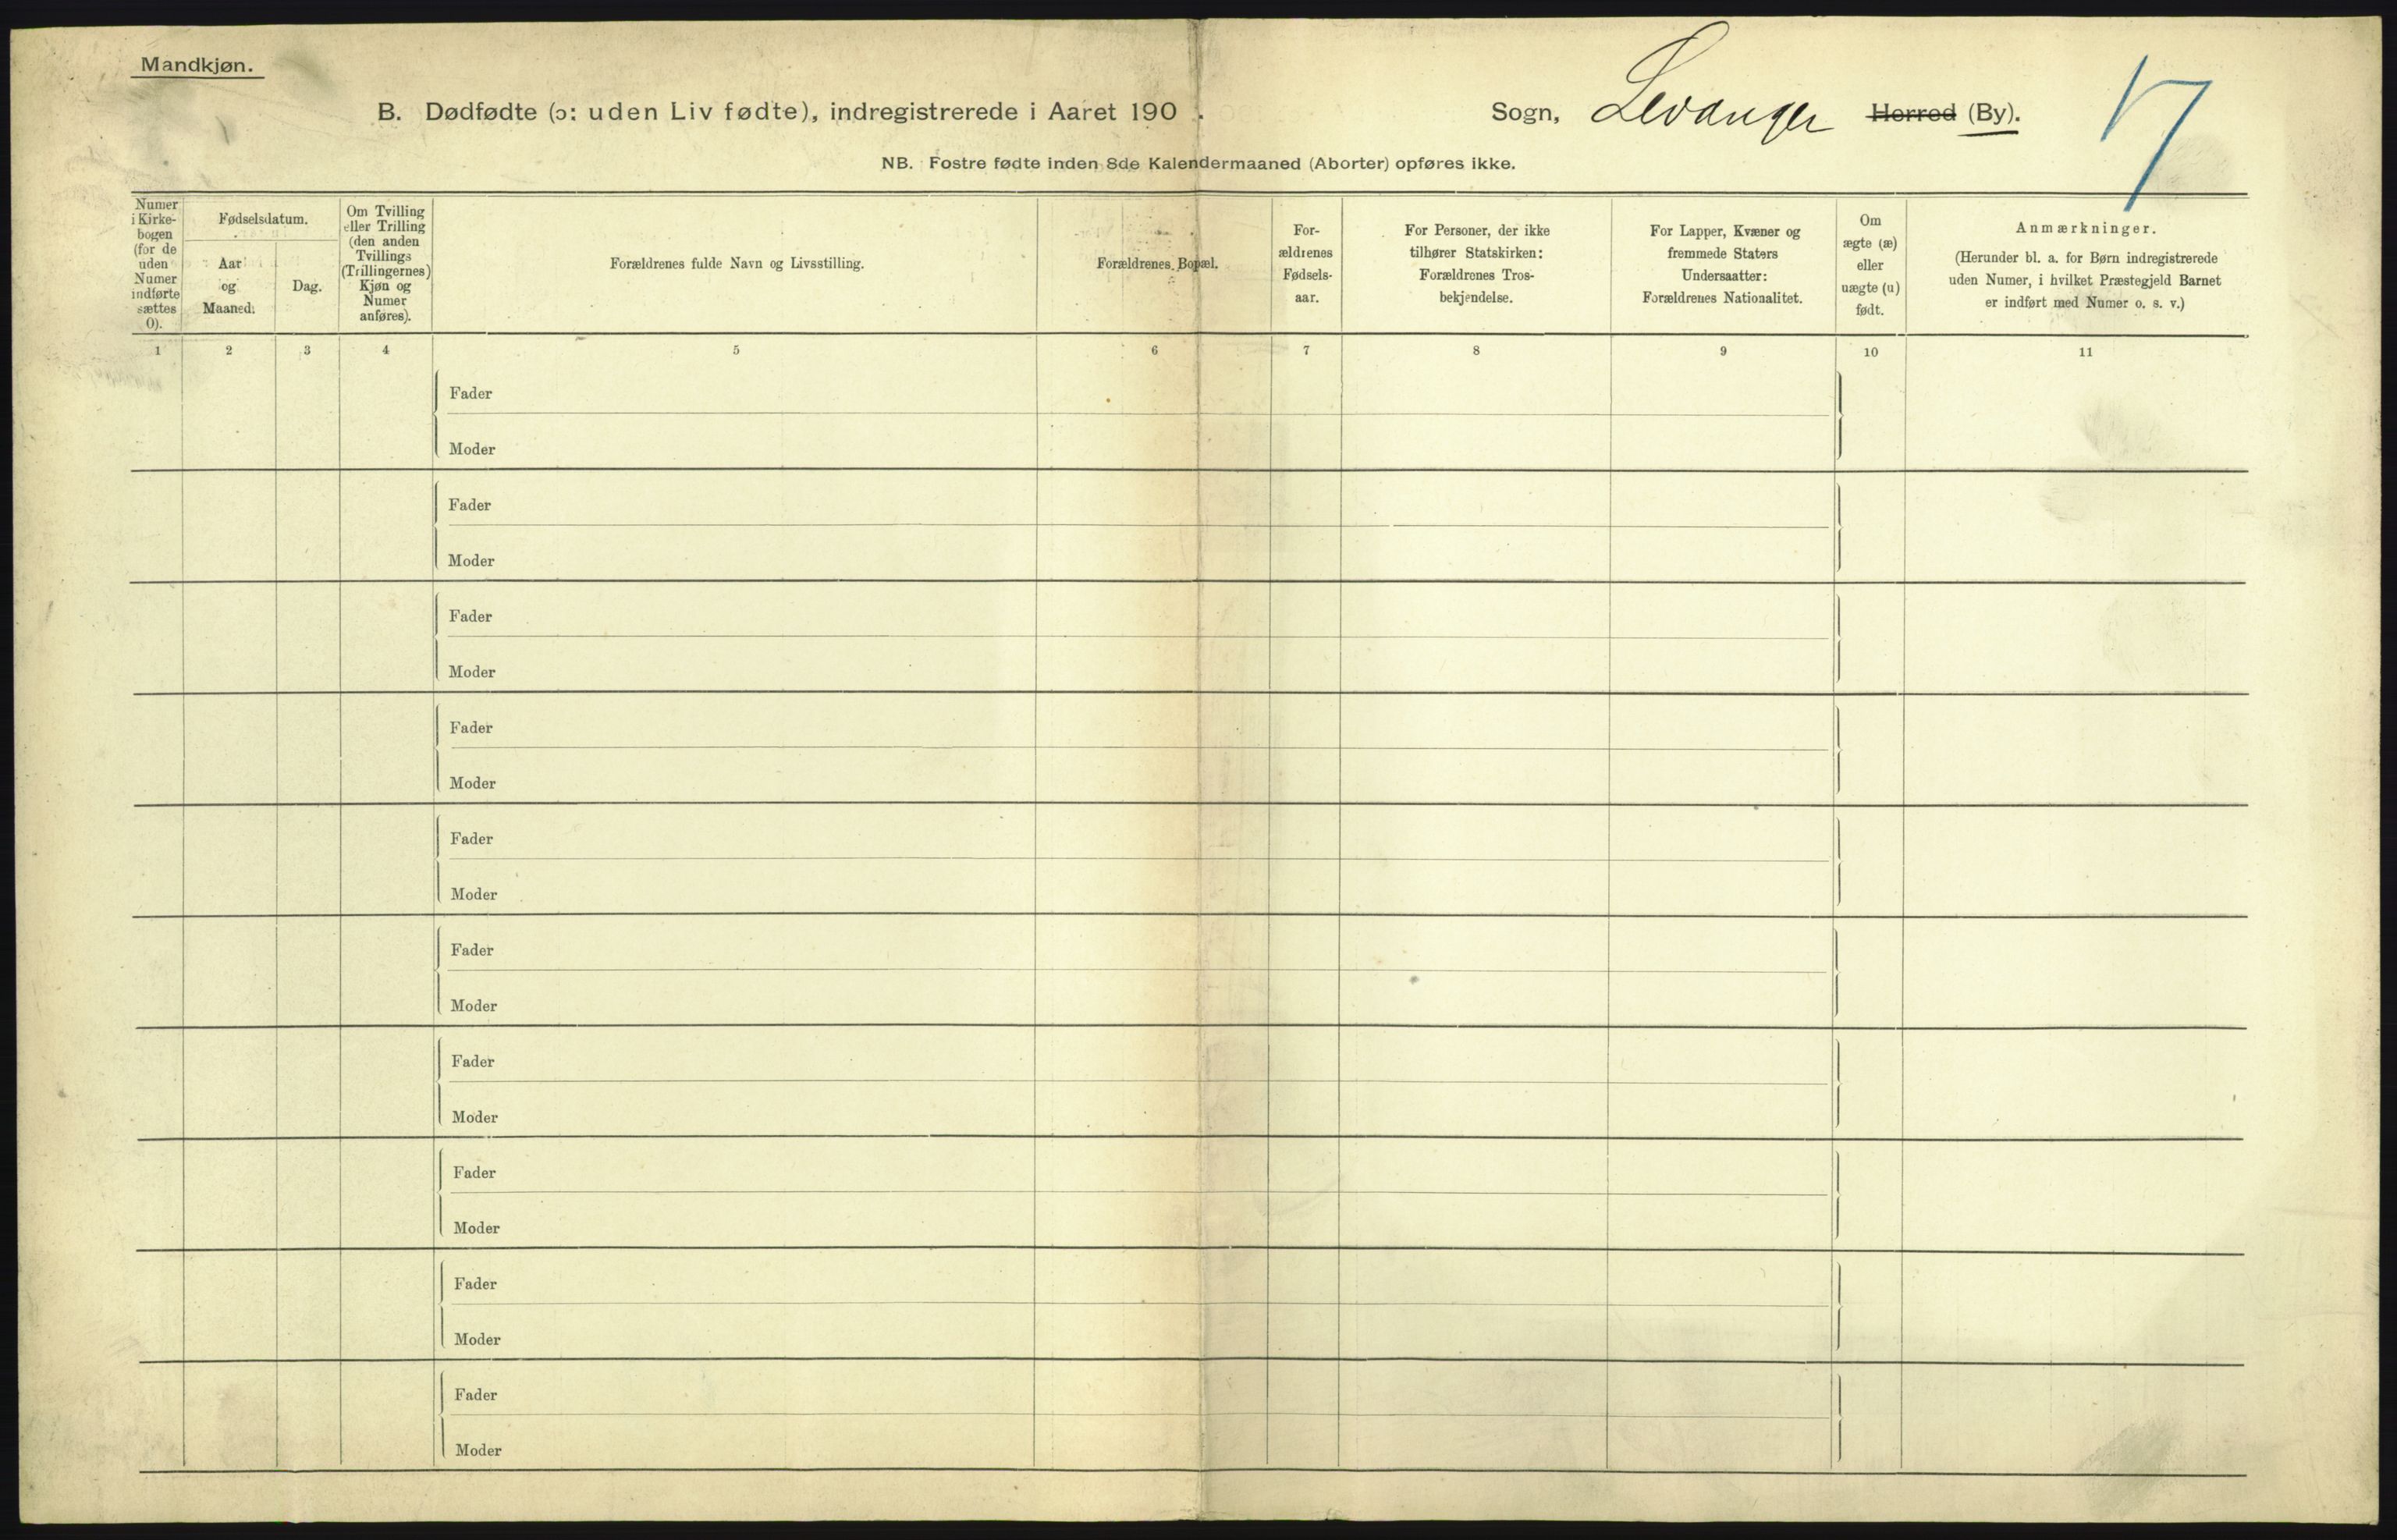 Mandkjøn.
B. Dødfødte (ɔ: uden Liv fødte), indregistrerede i Aaret 190 .
Sogn, Levanger Herred (By).
17
NB. Fostre fødte inden 8de Kalendermaaned (Aborter) opføres ikke.
Numer
i Kirke-
bogen
(for de
uden
Numer
indførte
sættes
0).
Fødselsdatum.
Aar
og
Maaned.
Dag.
Om Tvilling
eller Trilling
(den anden
Tvillings
(Trillingernes)
Kjøn og
Numer
anføres).
Forældrenes fulde Navn og Livsstilling.
Forældrenes Bopæl.
For-
ældrenes
Fødsels-
aar.
For Personer, der ikke
tilhører Statskirken:
Forældrenes Tros-
bekjendelse.
For Lapper, Kvæner og
fremmede Staters
Undersaatter:
Forældrenes Nationalitet.
Om
ægte (æ)
eller
uægte (u)
født.
Anmærkninger.
(Herunder bl. a. for Børn indregistrerede
uden Numer, i hvilket Præstegjeld Barnet
er indført med Numer o. s. v.)
1 2 3 4 5 6 7 8 9 10 11
Fader
Moder
Fader
Moder
Fader
Moder
Fader
Moder
Fader
Moder
Fader
Moder
Fader
Moder
Fader
Moder
Fader
Moder
Fader
Moder